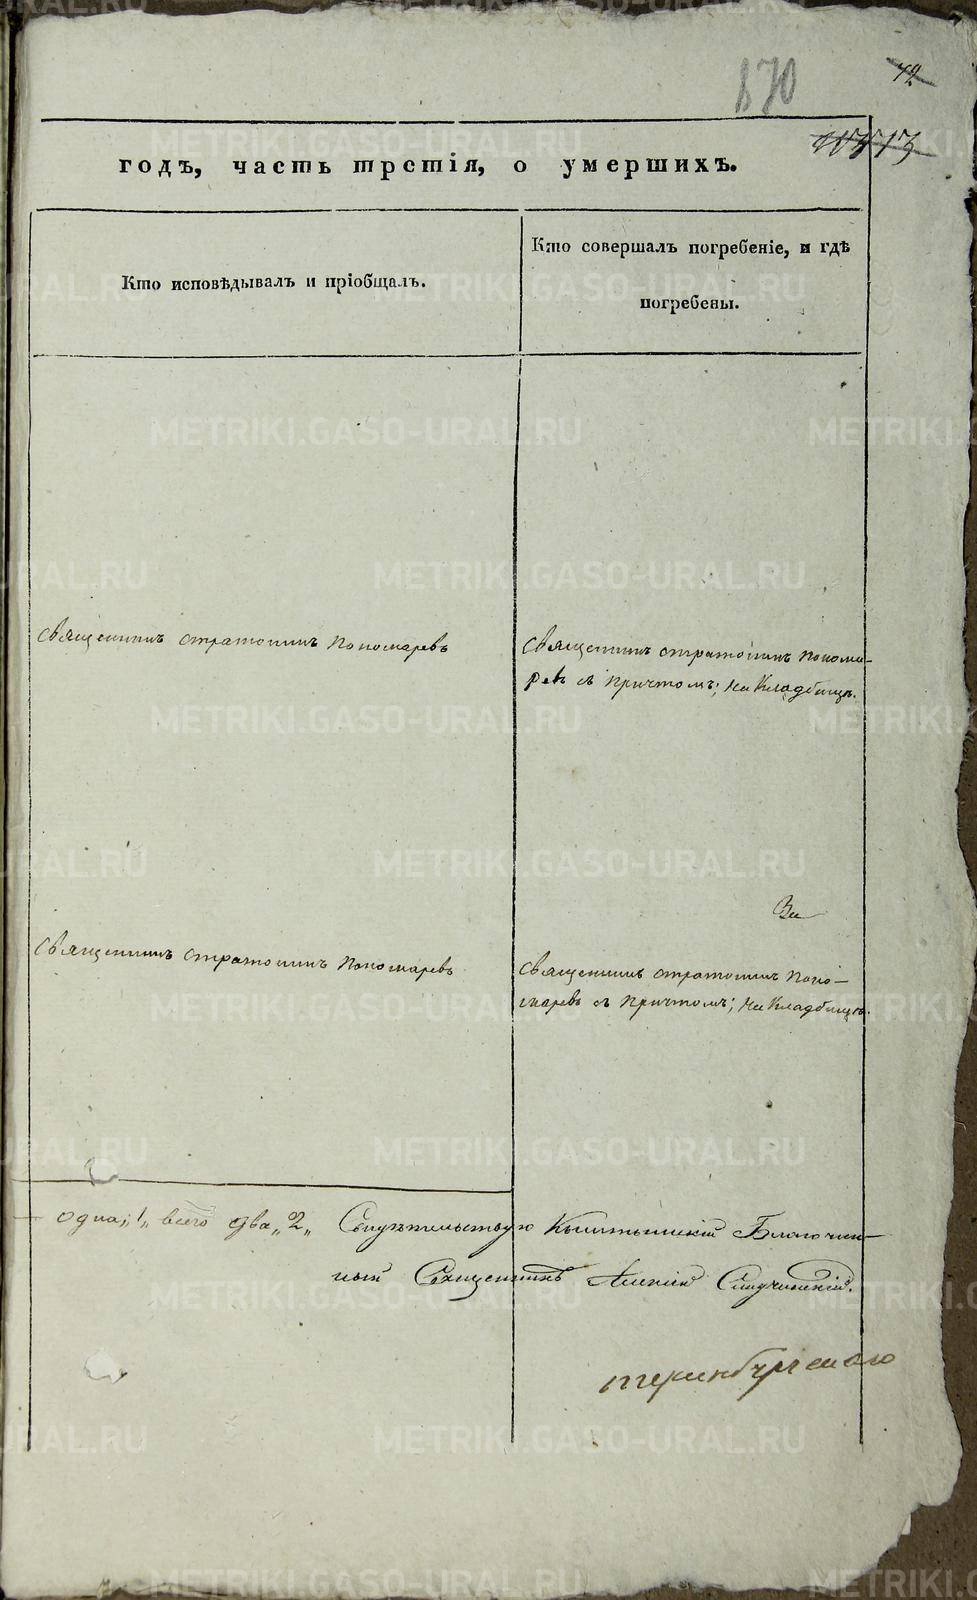 870
42
годъ, часть третія, о умершихъ.
Кто исповѣдывалъ и пріобщалъ.
Кто совершалъ погребеніе, и гдѣ
погребены.
Священникъ Стратоникъ Пономаревъ
Священникъ Стратоникъ Понома-
ревъ съ Причтомъ; на Кладбищѣ.
Священникъ Стратоникъ Пономаревъ
Священникъ Стратоникъ Поно-
маревъ съ Причтомъ; на Кладбищѣ.
одна „1„ всего два „2„ Свидѣтельствую Кыштымскій Благочин-
ный Священникъ Алексій
METRIKI.GASO-URAL.RU